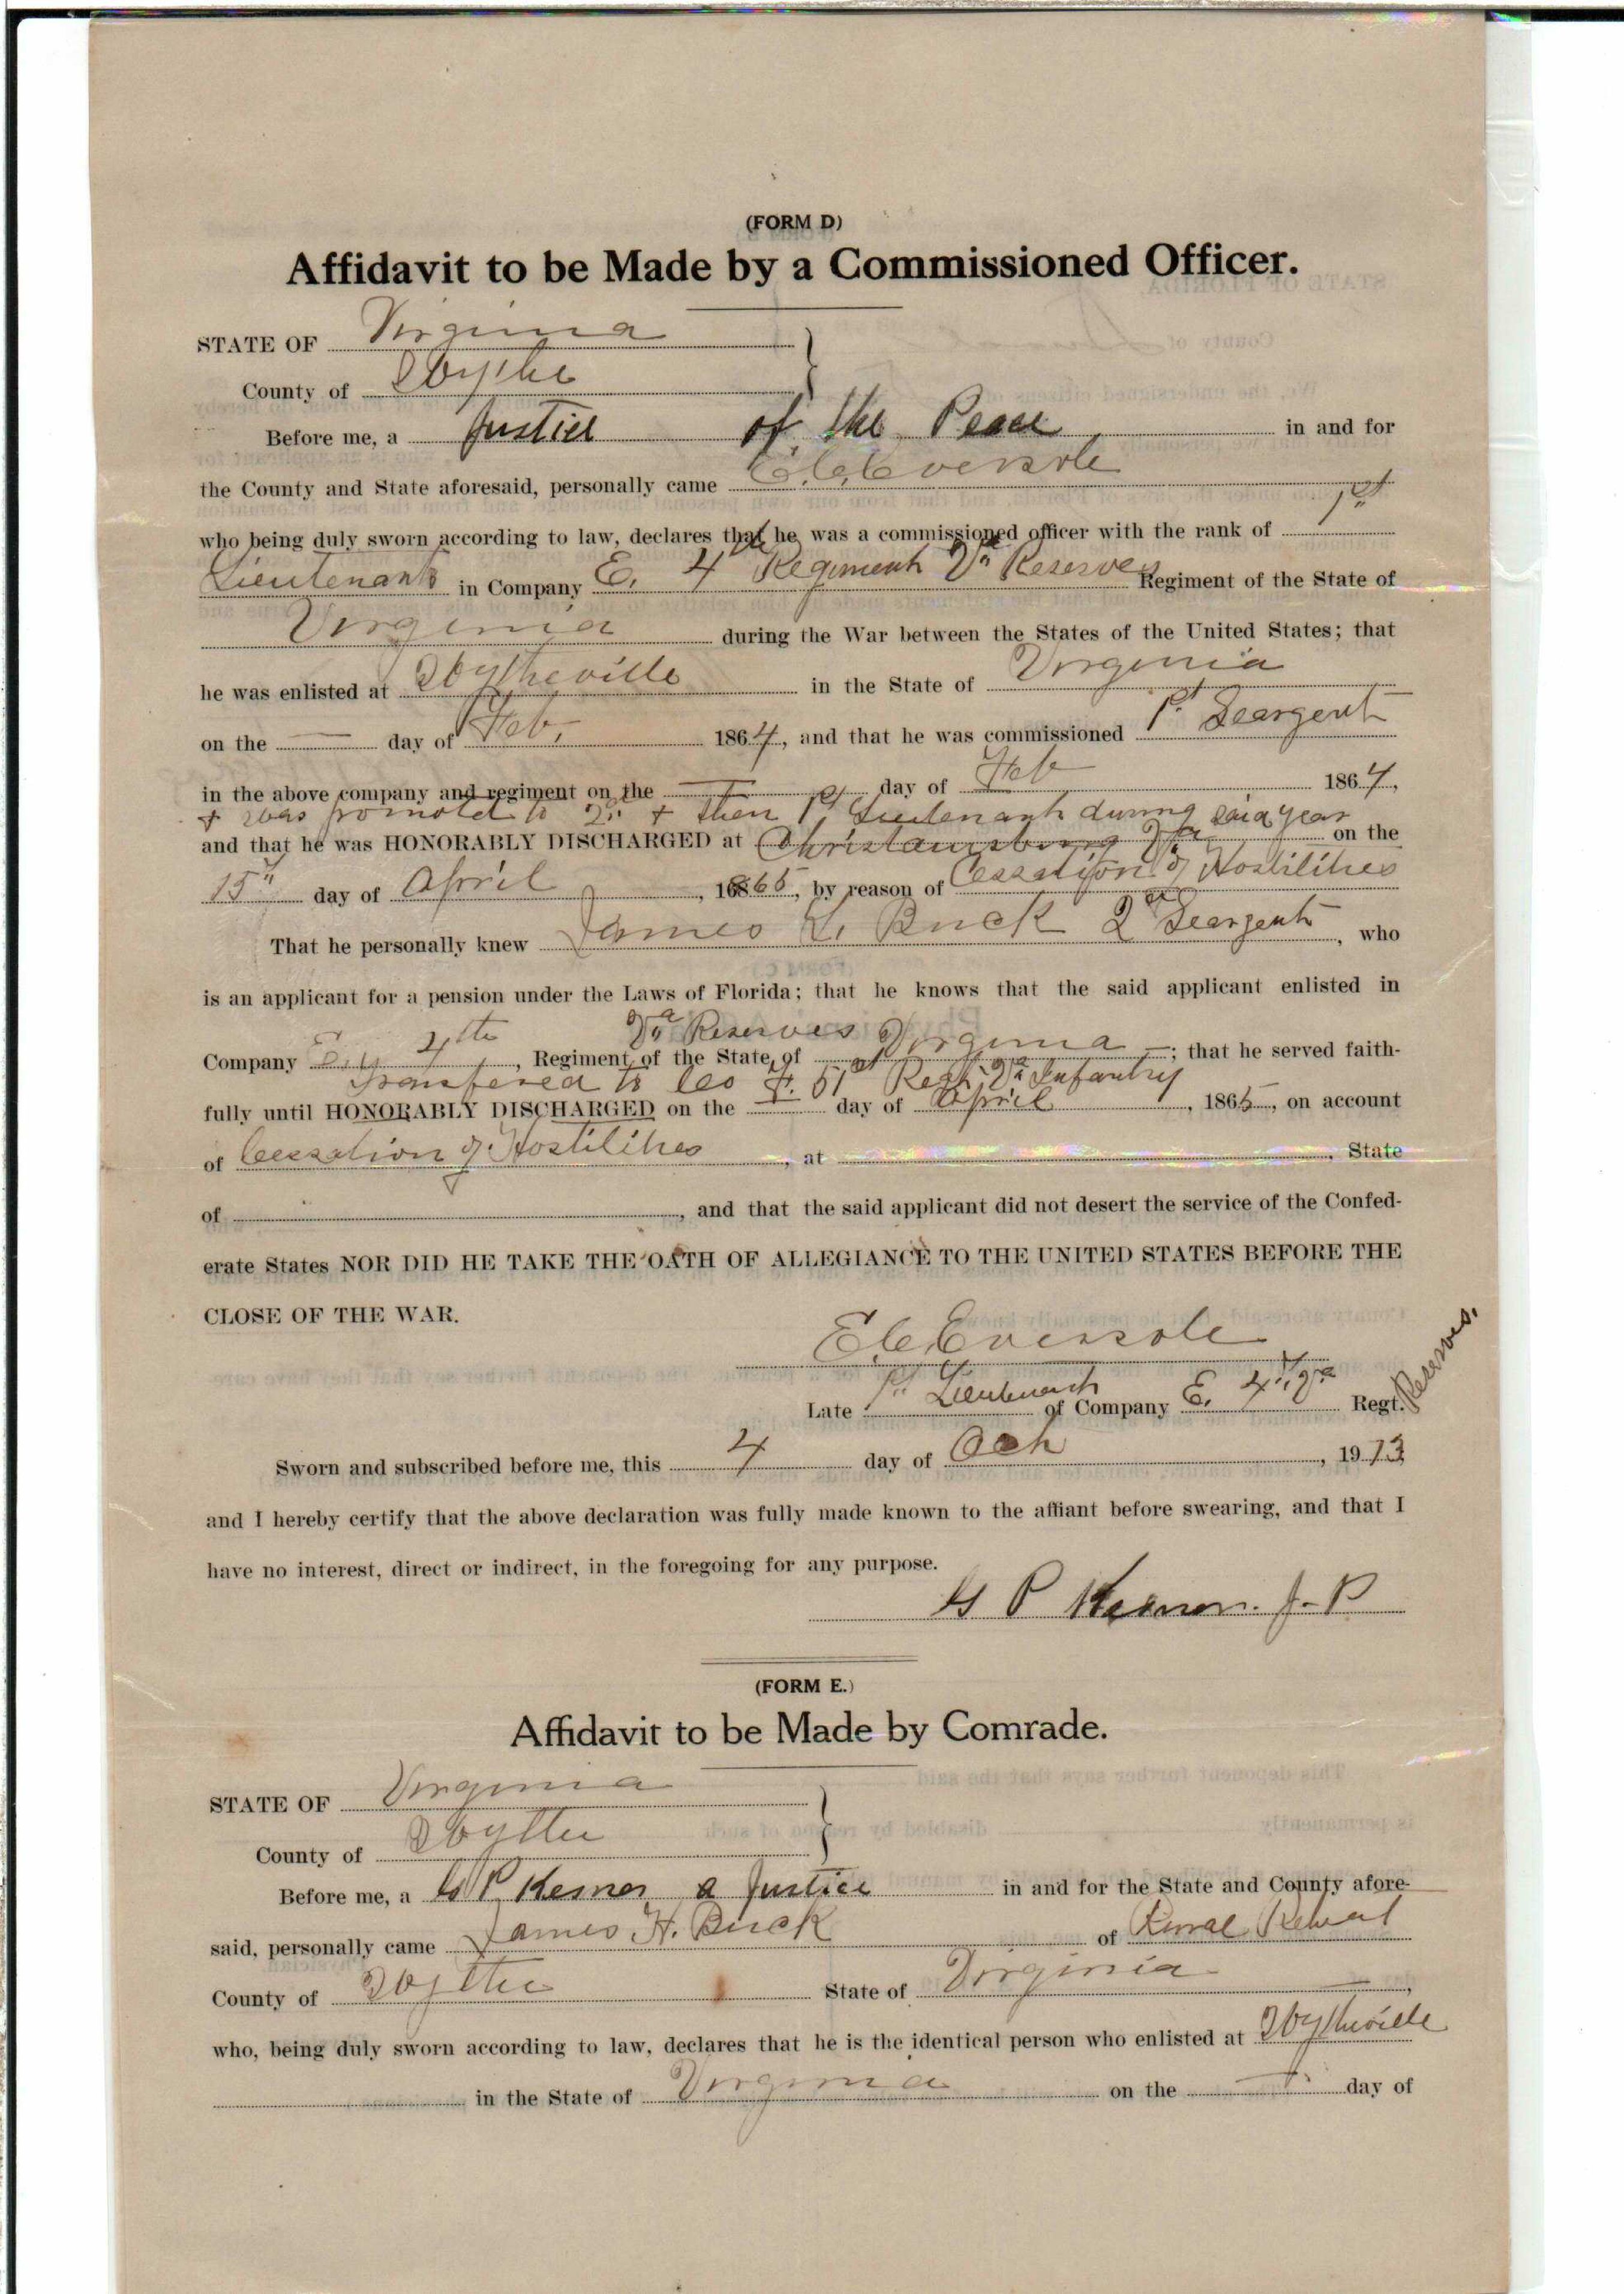 (FORM D)
Affidavit to be Made by a Commissioned Officer.
STATE OF Virginia
County of Wythe
Before me, a Justice of the Peace in and for
the County and State aforesaid, personally came E. C. Eversole
who being duly sworn according to law, declares that he was a commissioned officer with the rank of 1st
Lieutenant in Company E. 4th Regiment Va Reserves Regiment of the State of
Virginia during the War between the States of the United States; that
he was enlisted at Wytheville in the State of Virginia
on the — day of Feb. 1864, and that he was commissioned 1st Seargent
in the above company and regiment on the — day of Feb 1864,
+ was promoted to 2nd + then 1st Lieutenant during said year
and that he was HONORABLY DISCHARGED at Christiansburg Va on the
15th day of April, 1865, by reason of Cessation of Hostilities
That he personally knew James L. Buck 2nd Seargent, who
is an applicant for a pension under the Laws of Florida; that he knows that the said applicant enlisted in
Va Reserves
Company E, 4th, Regiment of the State of Virginia —; that he served faith-
Transfered to Co F. 51st Regt. Va Infantry
fully until HONORABLY DISCHARGED on the — day of April, 1865, on account
of Cessation of Hostilities, at , State
of , and that the said applicant did not desert the service of the Confed-
erate States NOR DID HE TAKE THE OATH OF ALLEGIANCE TO THE UNITED STATES BEFORE THE
CLOSE OF THE WAR.
E. C. Eversole
Late 1st Lieutenant of Company E. 4th Va Regt. Reserves.
Sworn and subscribed before me, this 4 day of Oct, 1913
and I hereby certify that the above declaration was fully made known to the affiant before swearing, and that I
have no interest, direct or indirect, in the foregoing for any purpose.
G P J-P
(FORM E.)
Affidavit to be Made by Comrade.
STATE OF Virginia
County of Wythe
Before me, a G P a Justice in and for the State and County afore-
said, personally came James H. Buck of Rural Retreat
County of Wythe State of Virginia,
who, being duly sworn according to law, declares that he is the identical person who enlisted at Wytheville
in the State of Virginia on the — day of